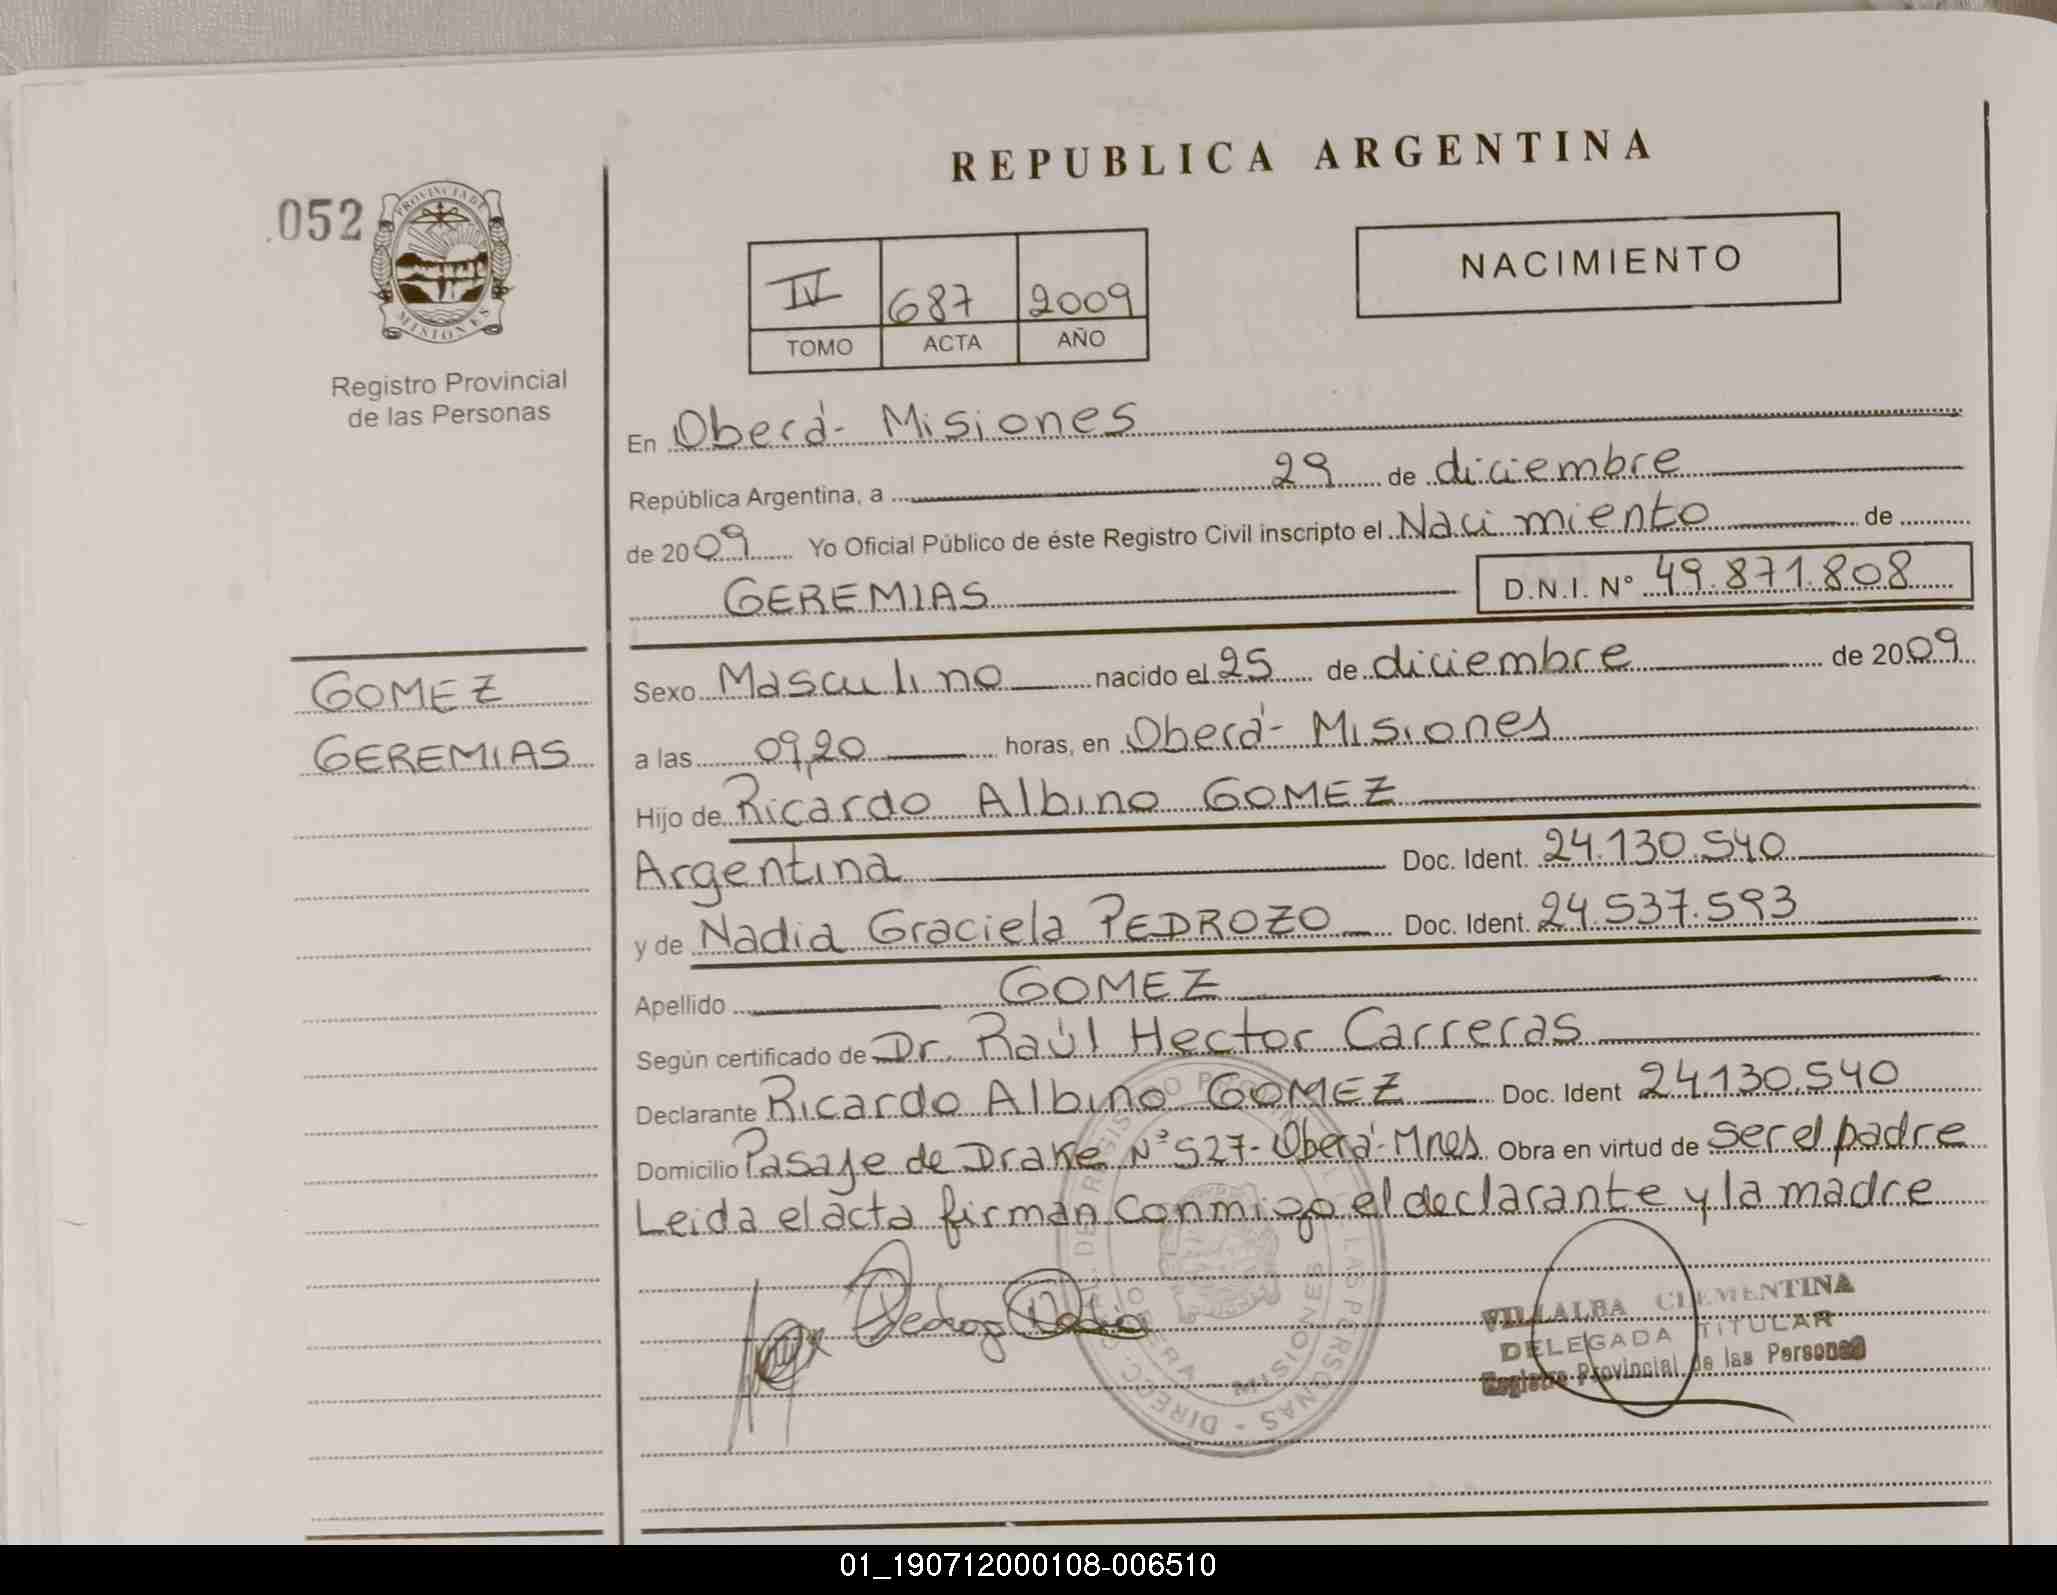 REPUBLICA ARGENTINA
.052
PROVINCIA DE
MISIONES
Registro Provincial
de las Personas
IV 687 2009
TOMO ACTA AÑO
NACIMIENTO
En Oberá- Misiones
República Argentina, a 29 de diciembre
de 2009 Yo Oficial Público de éste Registro Civil inscripto el Nacimiento de
GEREMIAS D.N.I. N° 49.871.808
GOMEZ
GEREMIAS
Sexo Masculino nacido el 25 de diciembre de 2009
a las 09,20 horas, en Oberá- Misiones
Hijo de Ricardo Albino GOMEZ
Argentina Doc. Ident. 24.130.540
y de Nadia Graciela PEDROZO Doc. Ident. 24.537.593
Apellido GOMEZ
Según certificado de Dr. Raúl Hector Carreras
Declarante Ricardo Albino GOMEZ Doc. Ident 24.130.540
Domicilio Pasaje de Drake N° 527- Oberá- Mnes Obra en virtud de ser el padre
Leida el acta firman conmigo el declarante y la madre
VILLALBA CLEMENTINA
DELEGADA TITULAR
Registro Provincial de las Personas
OBERA - MISIONES
01_190712000108-006510